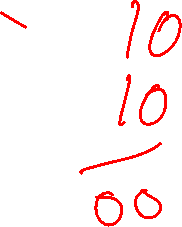 10
10
00